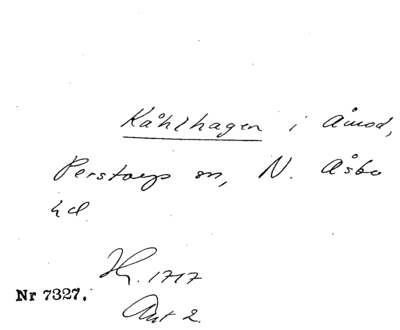 Kåhlhagen i Åmod,
Perstorps sn, N. Åsbo
hd.
Hr. 1717
Nr 7327.
Akt 2.